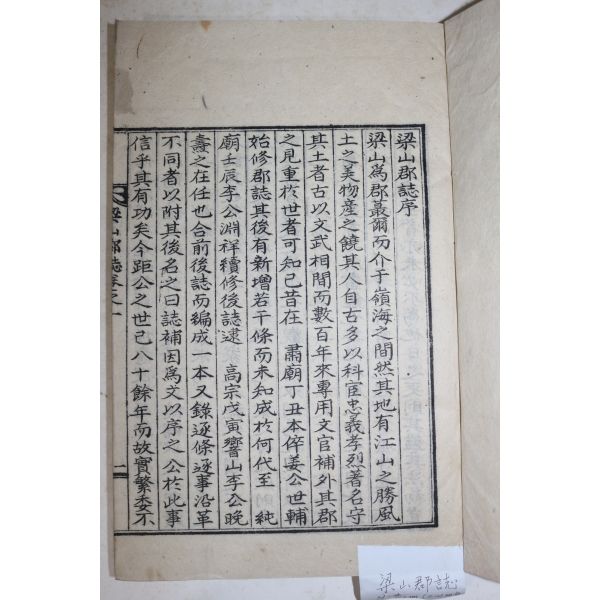 梁山郡誌序
梁山爲郡蕞爾而介于嶺海之間然其地有江山之勝風
土之美物産之饒其人自古多以科宦忠義孝烈著名守
其土者古以文武相間而數百年來專用文官補外其郡
之見重於世者可知已昔在 肅廟丁丑本倅姜公世輔
始修郡誌其後有新增若干條而未知成於何代至 純
廟壬辰李公淵祥續修後誌逮 高宗戊寅響山李公晩
燾之在任也合前後誌而編成一本又錄逐條逐事沿革
不同者以附其後名之曰誌補因爲文以序之公於此事
信乎其有功矣今距公之世已八十餘年而故實繁委不
梁山郡誌卷之一
一
梁山郡誌